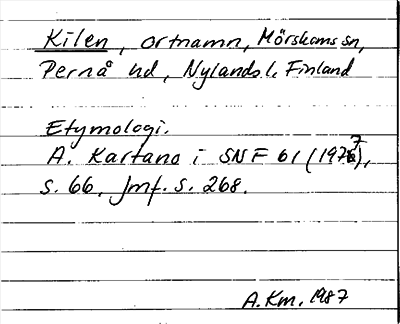 Kilen, ortnamn, Mörskoms sn,
Pernå hd, Nylands l. Finland
Etymologi.
A. Kartano i SNF 61 (1977),
s. 66. Jmf. s. 268.
A.Km. 1987